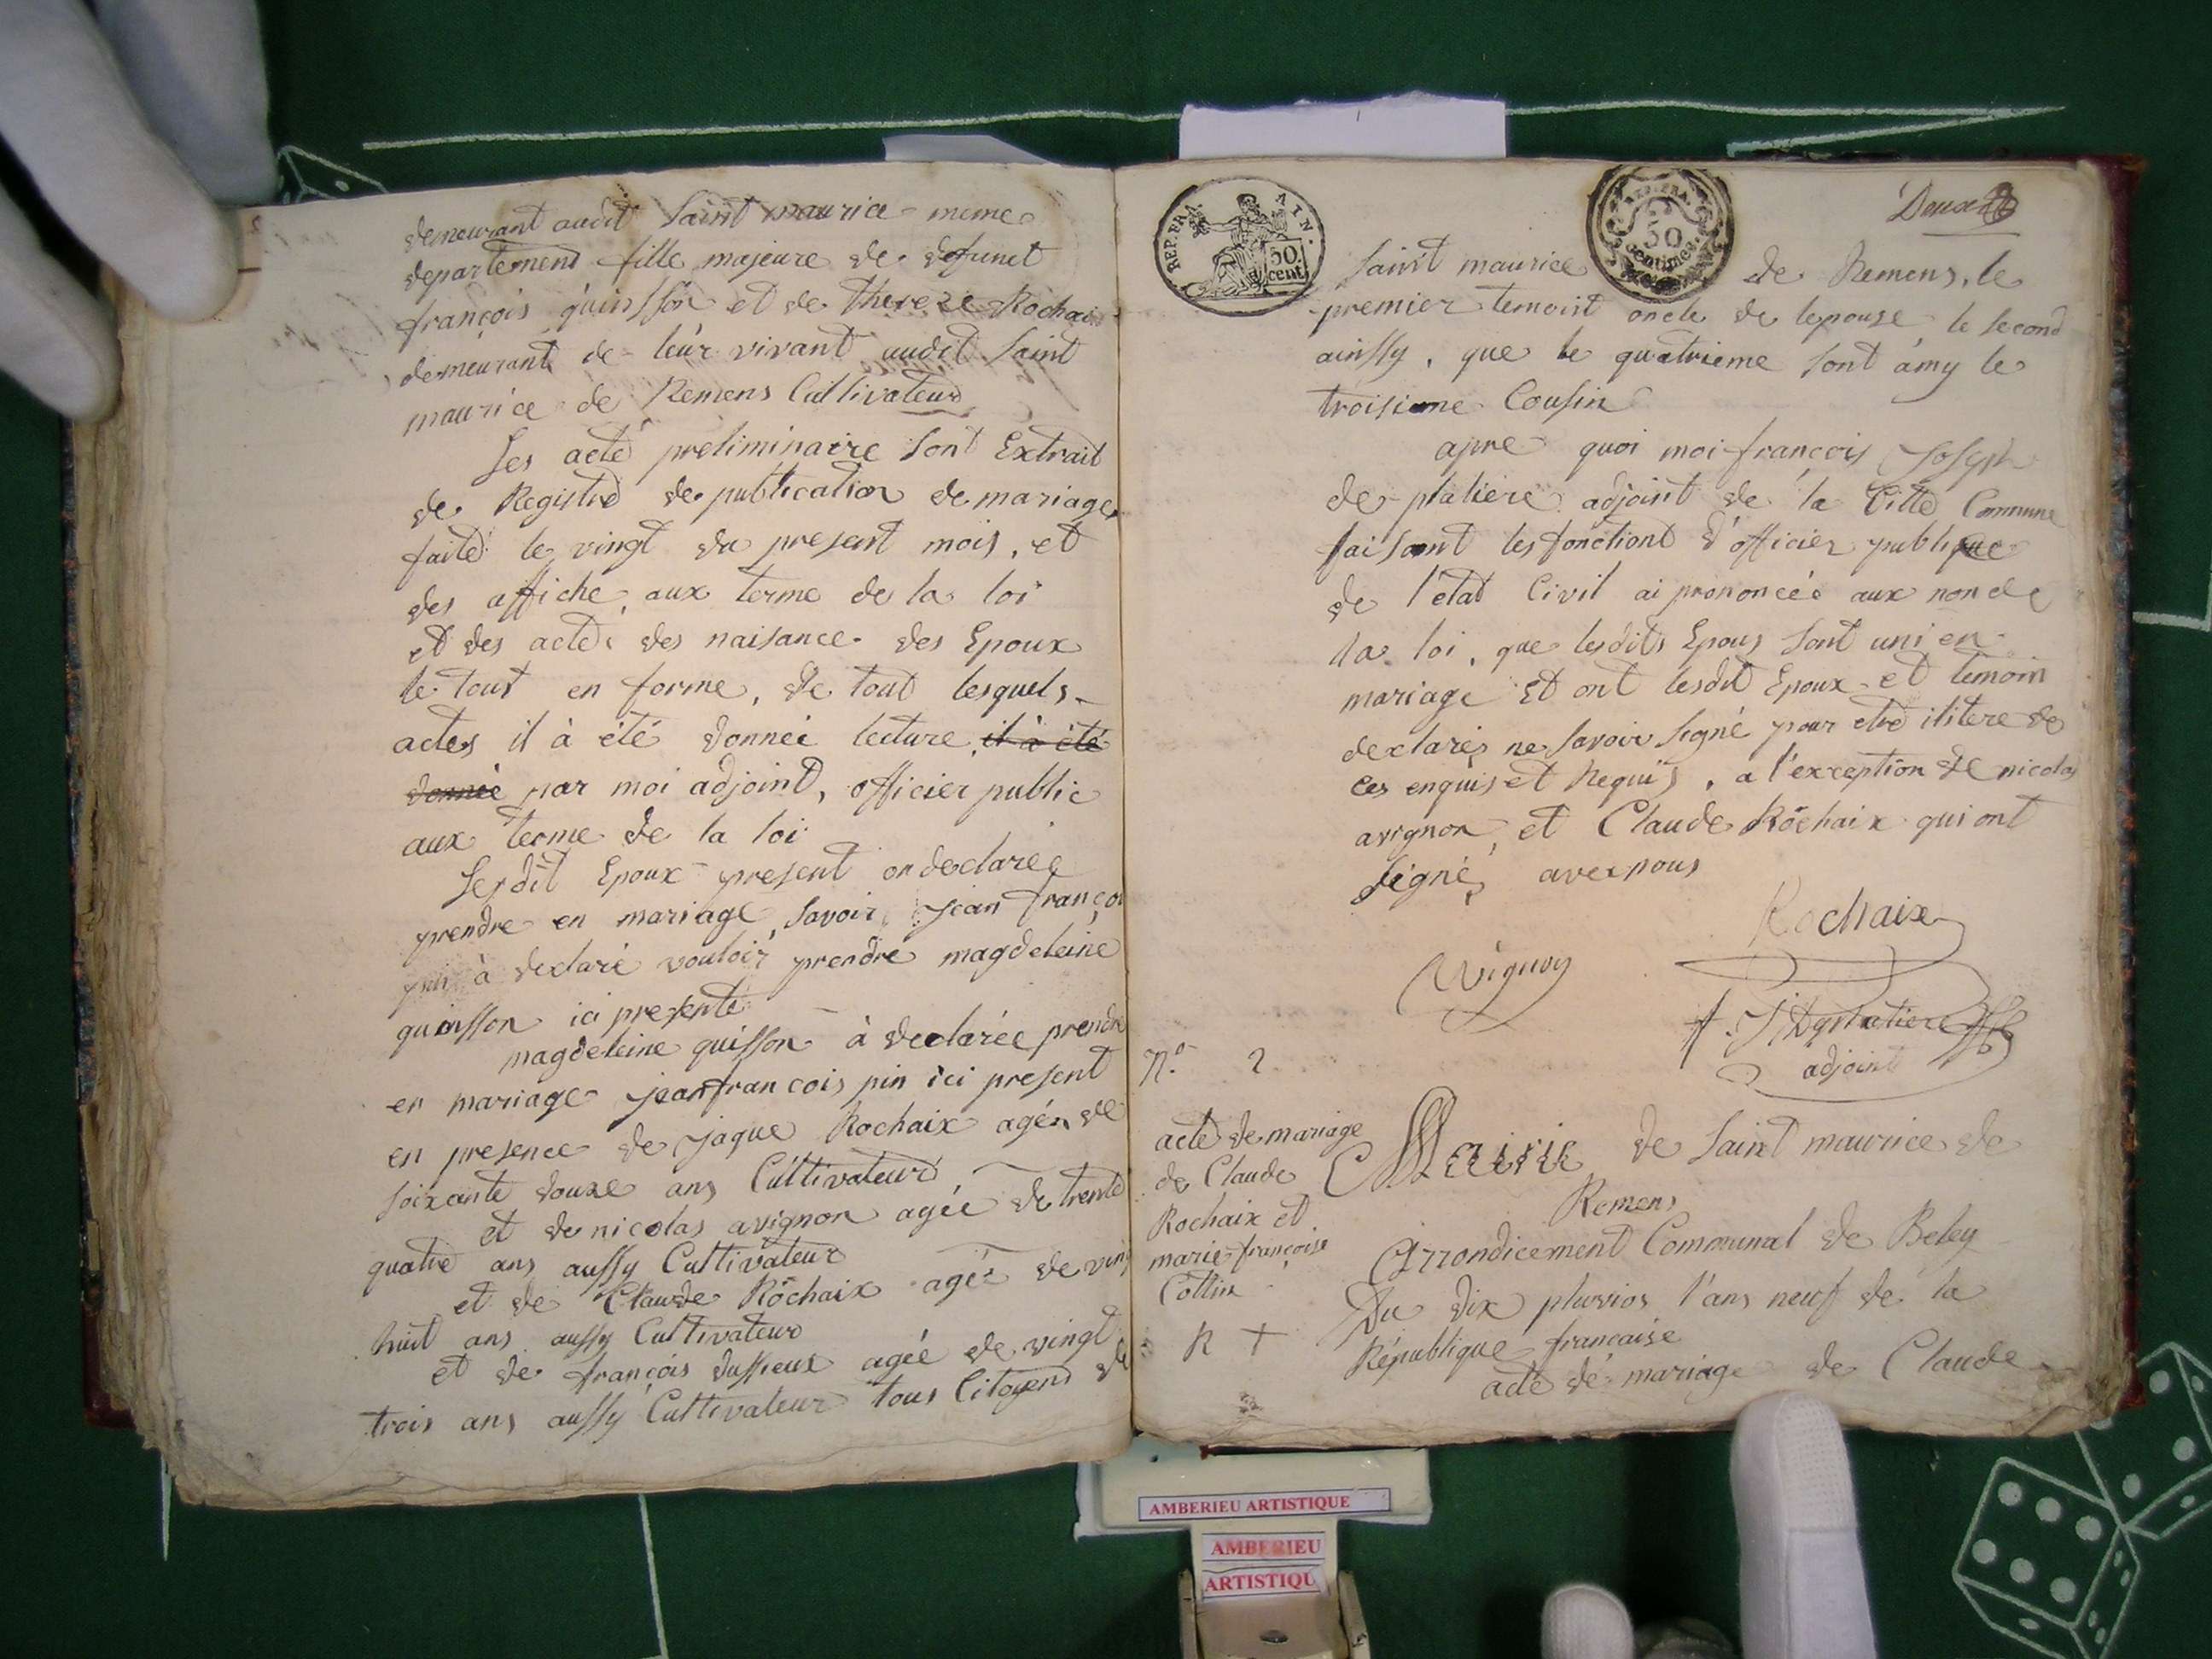 demeurant audit Saint maurice meme
departement fille majeure de defunct
françois quinsson et de therese Rochaix
demeurant de leur vivant audit Saint
maurice de Remens Cultivateur
Les acte preliminaire sont Extrait
de Registre de publication de mariage
faite le vingt du present mois, et
des affiche, aux terme de la loi
et des acte des naisance des Epoux
le tout en forme, de tout lesquels
actes il à été donneé lecture, il à été
donnée par moi adjoint, officier public
aux terme de la loi
Lesdit Epoux present on declareé
prendre en mariage, savoir, jean françoi
pin à declaré vouloir prendre magdeleine
quinsson ici presente
magdeleine quisson à declarée prendre
en mariage jean francois pin ici present
en presence de jaque Rochaix agé de
soixante douze ans Cultivateur,
et de nicolas avignon agée de trente
quatre ans aussy Cultivateur
et de Claude Rochaix ageé de ving
huit ans aussy Cultivateur
et de françois dussieux agée de vingt
trois ans aussy Cultivateur tous Citoyens de
REP. FRA. AIN.
50 cent
REP. FRA.
50 centimes
Deux
Saint maurice de Remens, le
premier temoint oncle de lepouse le second
ainssy, que le quatrieme sont àmy le
troisieme Cousin
apre quoi moi françois Joseph
de platiere adjoint de la ditte Commune
faisant les fonctiont d'officier publique
de l'état Civil ai prononcéé aux non de
la loi, que lesdits Epous sont uni en
mariage Et ont lesdit Epoux et temoin
declarés ne savoir signé pour etre ilitere de
ces enquis et Requis, a l'exception de nicolas
avignon, et Claude Rochaix qui ont
signé, avec nous
Rochaix
Vignon
f. J. Deplatiere
adjoint
N.º 2
acte de mariage
de Claude
Rochaix et
marie françoise
Cottin
R +
Mairie de Saint maurice de
Remens
Arrondicement Communal de Beley
Du dix pluvios l'ans neuf de la
République francaise
acte de mariage de Claude
AMBERIEU ARTISTIQUE
AMBERIEU
ARTISTIQU